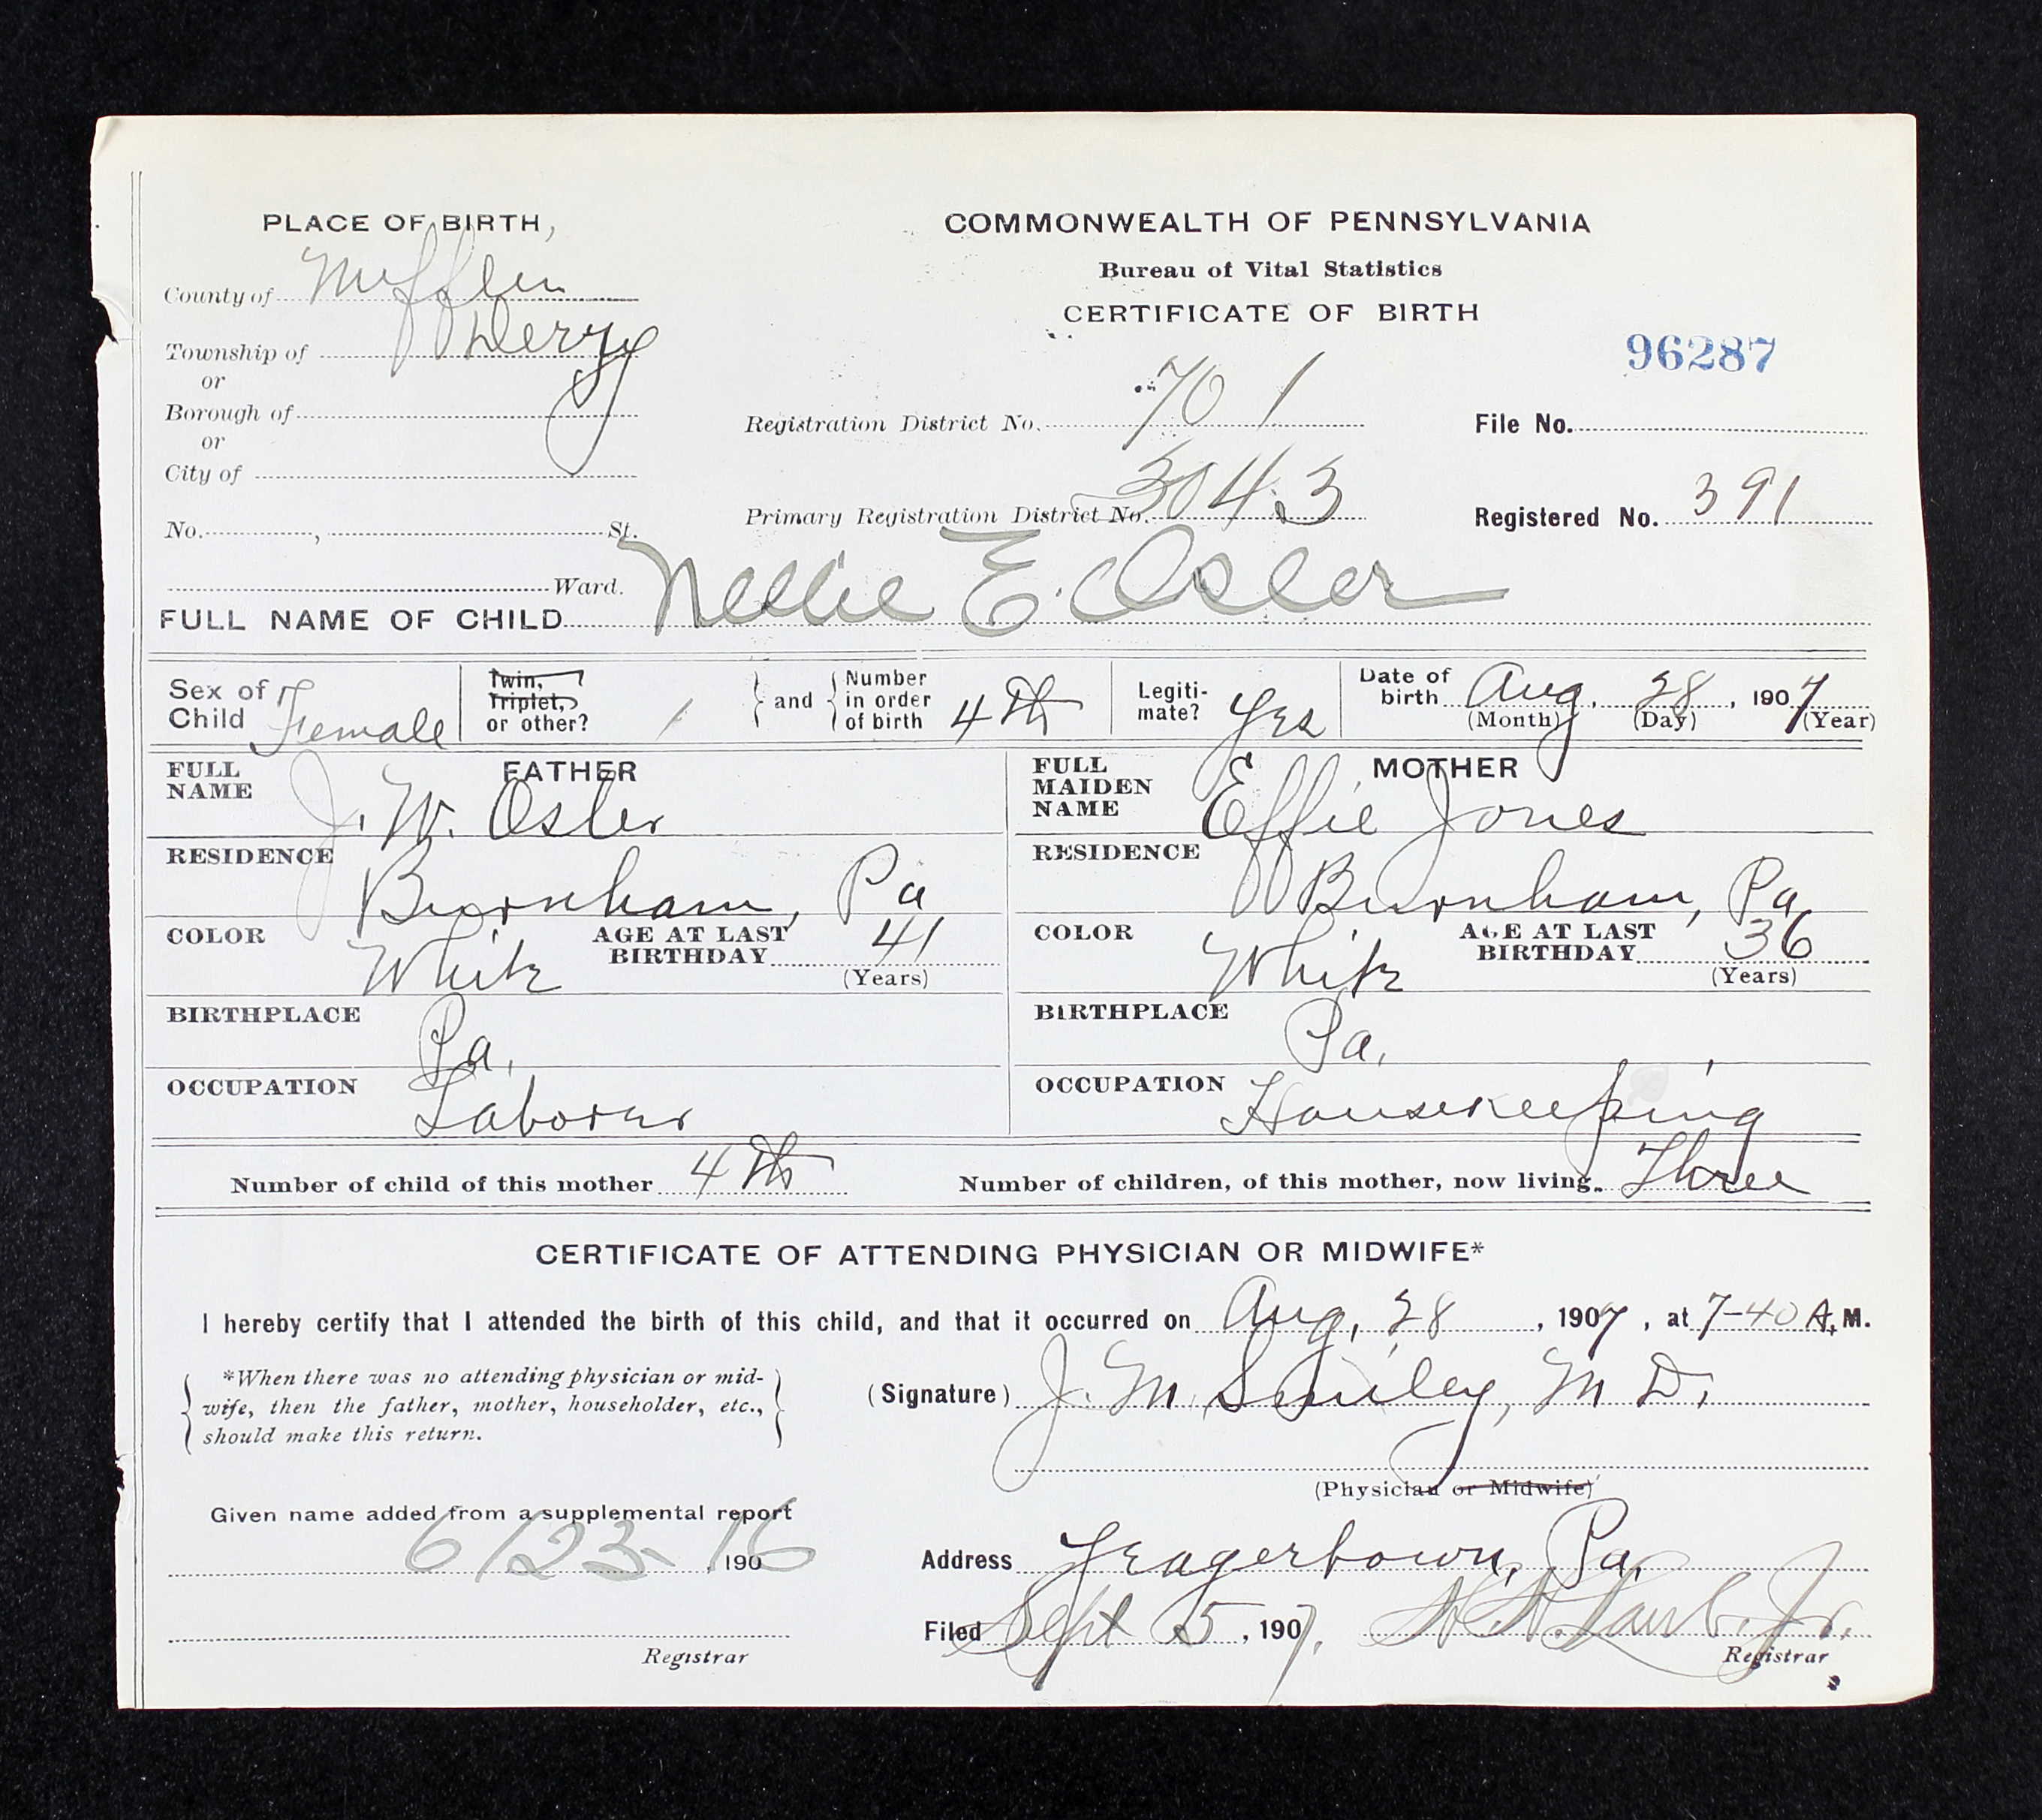 PLACE OF BIRTH,
County of Mifflin
Township of Derry
or
Borough of
or
City of
No. , St.
Ward.
COMMONWEALTH OF PENNSYLVANIA
Bureau of Vital Statistics
CERTIFICATE OF BIRTH
96287
Registration District No. 701
File No.
Primary Registration District No. 3043
Registered No. 391
FULL NAME OF CHILD Nellie E. Osler
Sex of Child Female
Twin, Triplet, or other? 1
and Number in order of birth 4th
Legitimate? Yes
Date of birth Aug, 28, 1907
(Month) (Day) (Year)
FATHER
FULL NAME J. W. Osler
RESIDENCE Burnham, Pa
COLOR White AGE AT LAST BIRTHDAY 41
(Years)
BIRTHPLACE Pa.
OCCUPATION Laborer
MOTHER
FULL MAIDEN NAME Effie Jones
RESIDENCE Burnham, Pa
COLOR White AGE AT LAST BIRTHDAY 36
(Years)
BIRTHPLACE Pa.
OCCUPATION Housekeeping
Number of child of this mother 4th Number of children, of this mother, now living Three
CERTIFICATE OF ATTENDING PHYSICIAN OR MIDWIFE*
I hereby certify that I attended the birth of this child, and that it occurred on Aug, 28, 1907, at 7-40 A. M.
*When there was no attending physician or mid-
wife, then the father, mother, householder, etc.,
should make this return.
(Signature) J. M. Smiley, M. D.
(Physician or Midwife)
Given name added from a supplemental report
6/23-16, 190
Registrar
Address Yeagertown, Pa.
Filed Sept 5, 1907. Laub. Jr.
Registrar